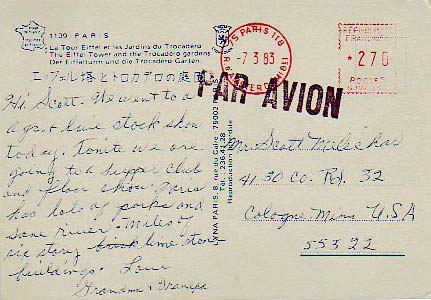 1139 - PARIS
La Tour Eiffel et les Jardins du Trocadéro
The Eiffel Tower and the Trocadéro gardens
Der Eiffelturm und die Trocadéro Garten
エッフル塔とトロカデロの庭園
Hi Scott. We went to a
agr. & live stock show
today. Tonite we are
going to a supper club
and floor show. Paris
has lots of parks and
sane river. Miles of
six story brick lime stone
buildings. Love
Grandma & Grampa
YNA PARIS, 8, rue du Caire, 75002
Tél. 236.41.28
Reproduction interdite
75 PARIS 118
- 7 3 83
R. D'ANTERS (18E)
REPUBLIQUE
FRANCAISE
* 270
POSTES
PAR AVION
Mr. Scott
4130 Co. Rd. 32
Cologne Minn USA
55322